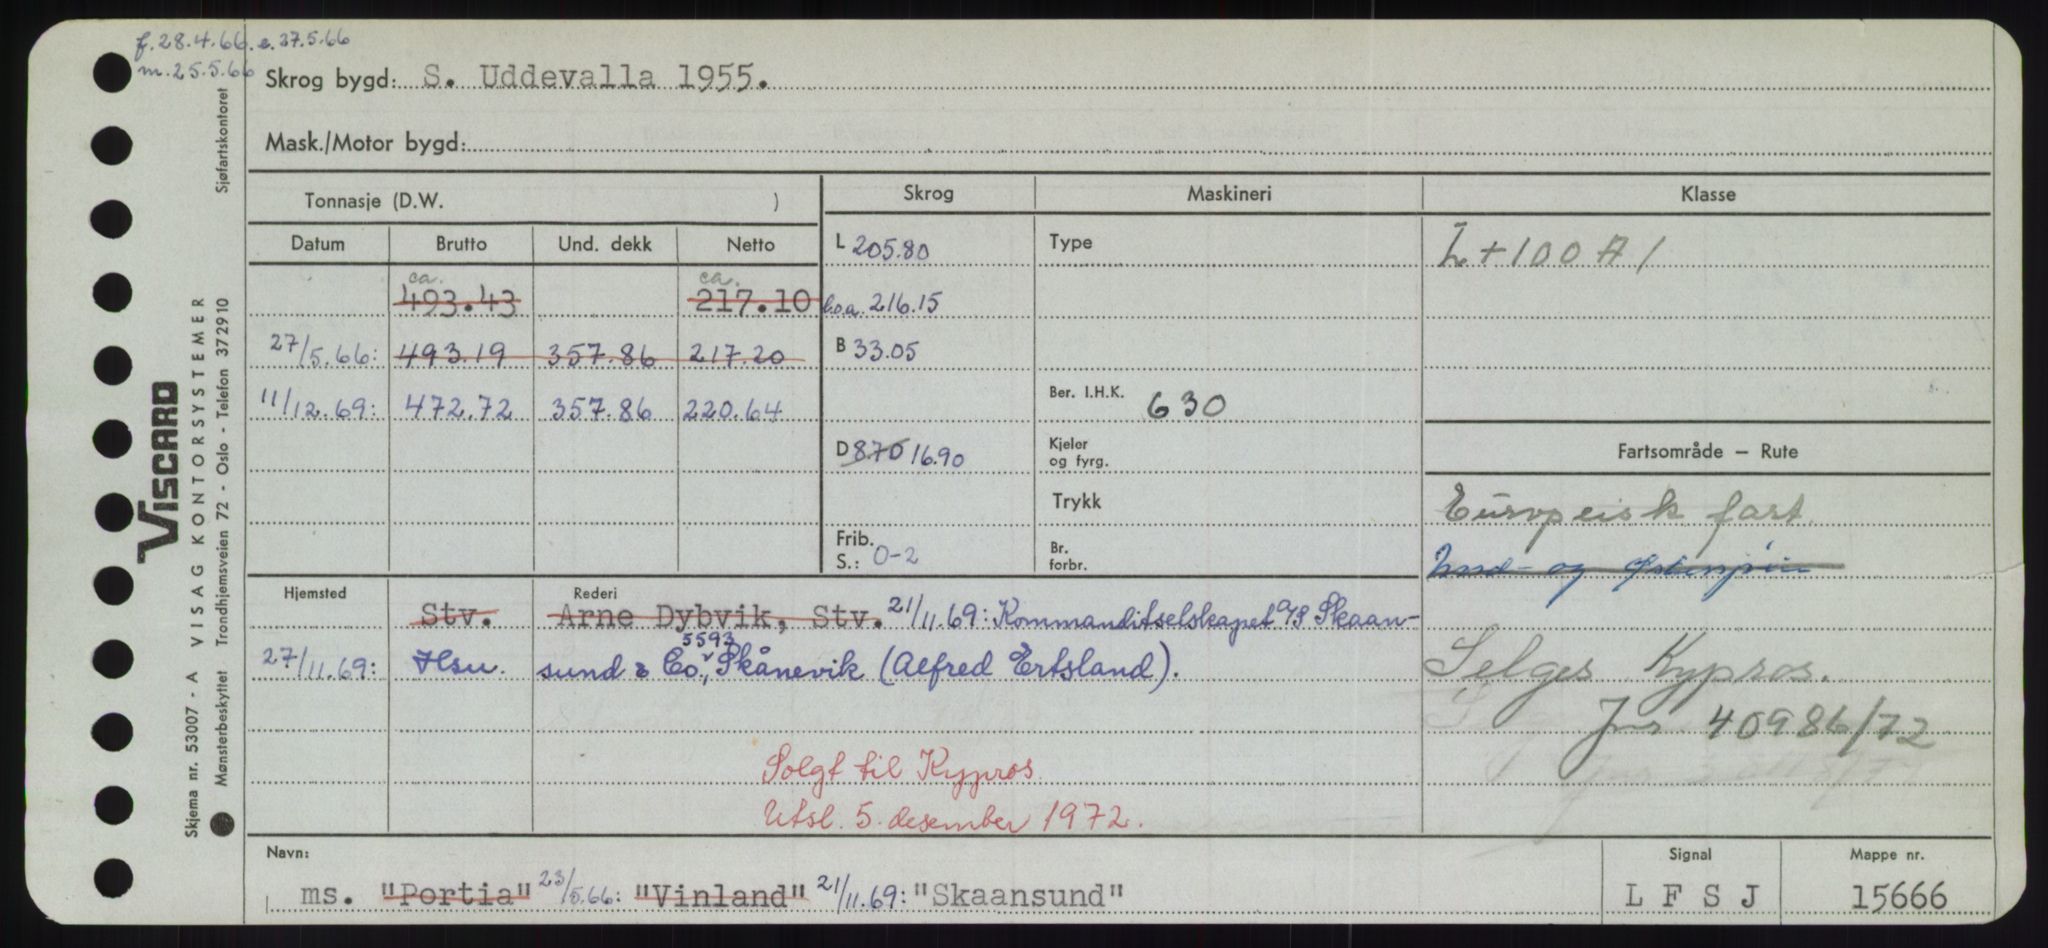 f. 28.4.66. e. 27.5.66
m. 25.5.66
Skrog bygd: S. Uddevalla 1955.
Mask./Motor bygd:
Tonnasje (D.W. )
Skrog
Maskineri
Klasse
Datum Brutto Und. dekk Netto
L 205.80
Type
L + 100 A 1
ca. 493.43 ca. 217.10
l.o.a. 216.15
27/5.66: 493.19 357.86 217.20
B 33.05
11/12.69: 472.72 357.86 220.64
Ber. I.H.K. 630
D 870 16.90
Kjeler og fyrg.
Fartsområde – Rute
Trykk
Europeisk fart.
Frib. S.: 0-2
Br. forbr.
Nord- og Østersjøen
Hjemsted
Rederi
Stv. Arne Dybvik, Stv. 21/11.69: Kommanditselskapet A/S Skaan-
27/11.69: Hsu. sund & Co., 5593 Skånevik (Alfred Ertsland).
Selges Kypros.
Jnr 40986/72
Solgt til Kypros
Utsl. 5. desember 1972.
Navn:
Signal
Mappe nr.
ms. "Portia" 23/5.66: "Vinland" 21/11.69: "Skaansund"
L F S J
15666
VISCARD
Skjema nr. 53007 - A VISAG KONTORSYSTEMER
Mønsterbeskyttet Trondhjemsveien 72 - Oslo - Telefon 372910 Sjøfartskontoret